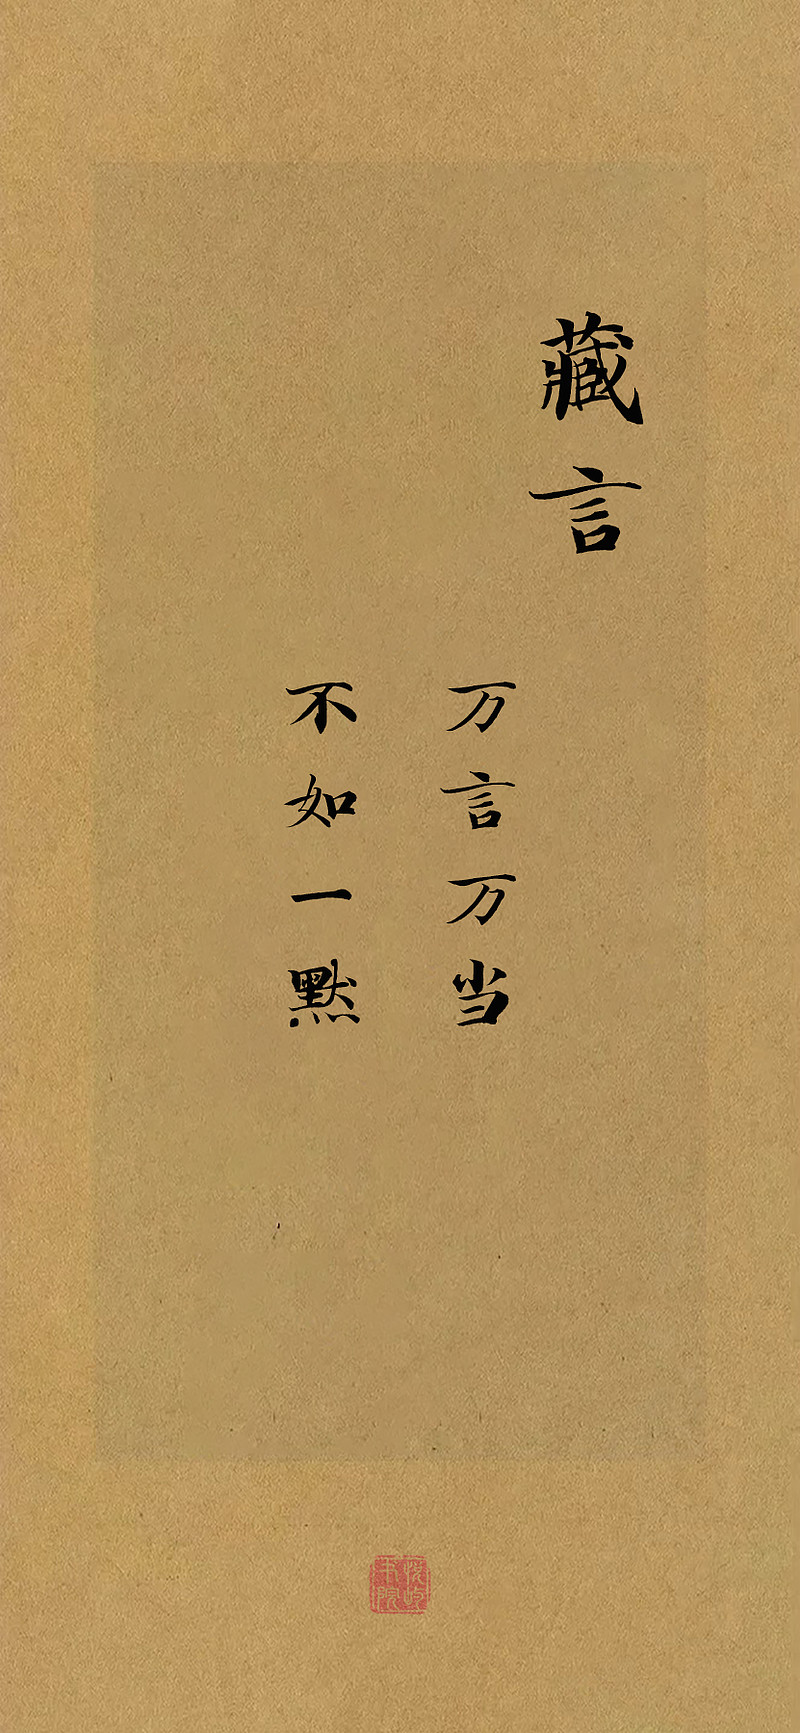 藏言
万言万当
不如一默